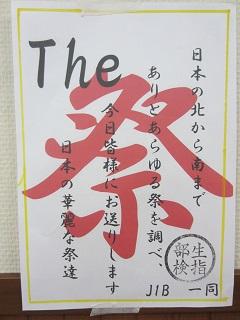 The
祭
日本の北から南まで
ありとあらゆる祭を調べ
今日皆様にお送りします
日本の華麗な祭達
生指
部検
JIB 一同